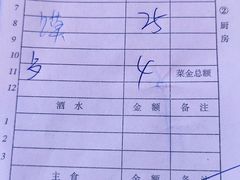 8 25
9
10
11 4 菜金总额
12
酒水 金额 备注
1
2
3
主食 金额 备注
② 厨房